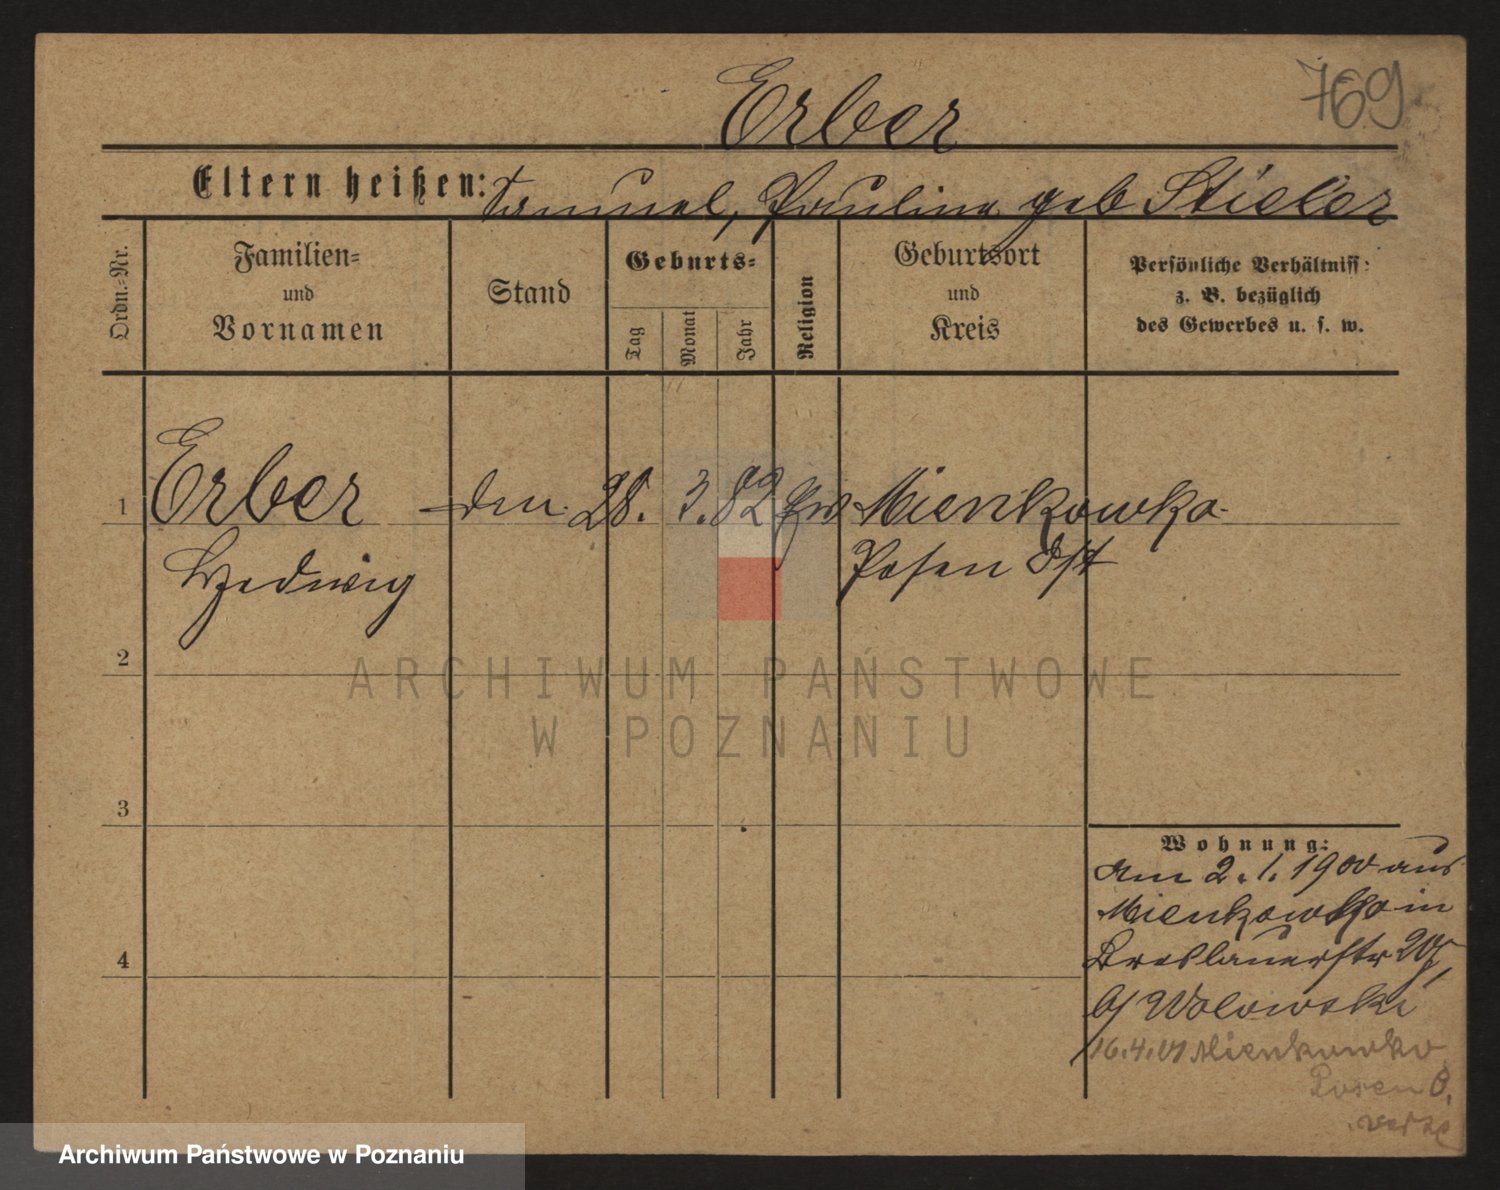 769
Erber
Eltern heißen: Samuel, Paulina geb Stieler
Ordn.=Nr.
Familien=
und
Vornamen
Stand
Geburts=
Tag
Monat
Jahr
Religion
Geburtsort
und
Kreis
Persönliche Verhältniss:
z. B. bezüglich
des Gewerbes u. s. w.
1
Erber
Hedwig
28. 3. 82
Mienkowko
Posen Ost
2
ARCHIWUM PAŃSTWOWE
W POZNANIU
3
4
Wohnung:
am 2. 1. 1900 aus
Mienkowko in
Breslauerstr
b/ Wolowski
16.4. Mienkowko
Posen O.
verze
Archiwum Państwowe w Poznaniu